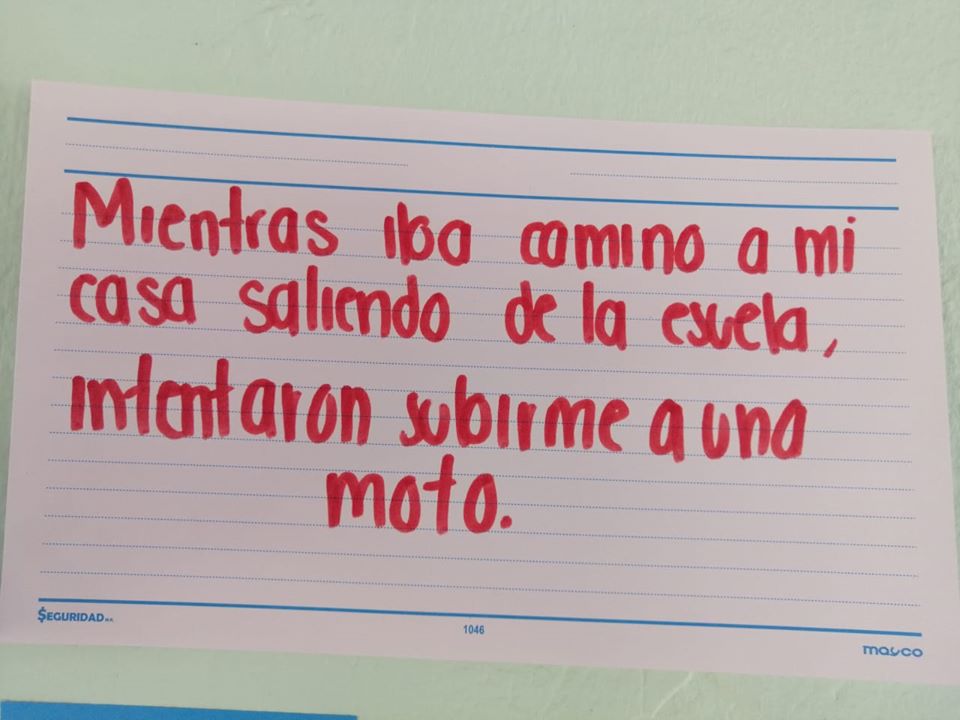 Mientras iba camino a mi
casa saliendo de la escuela,
intentaron subirme a una
moto.
SEGURIDAD M.R.
1046
mayco